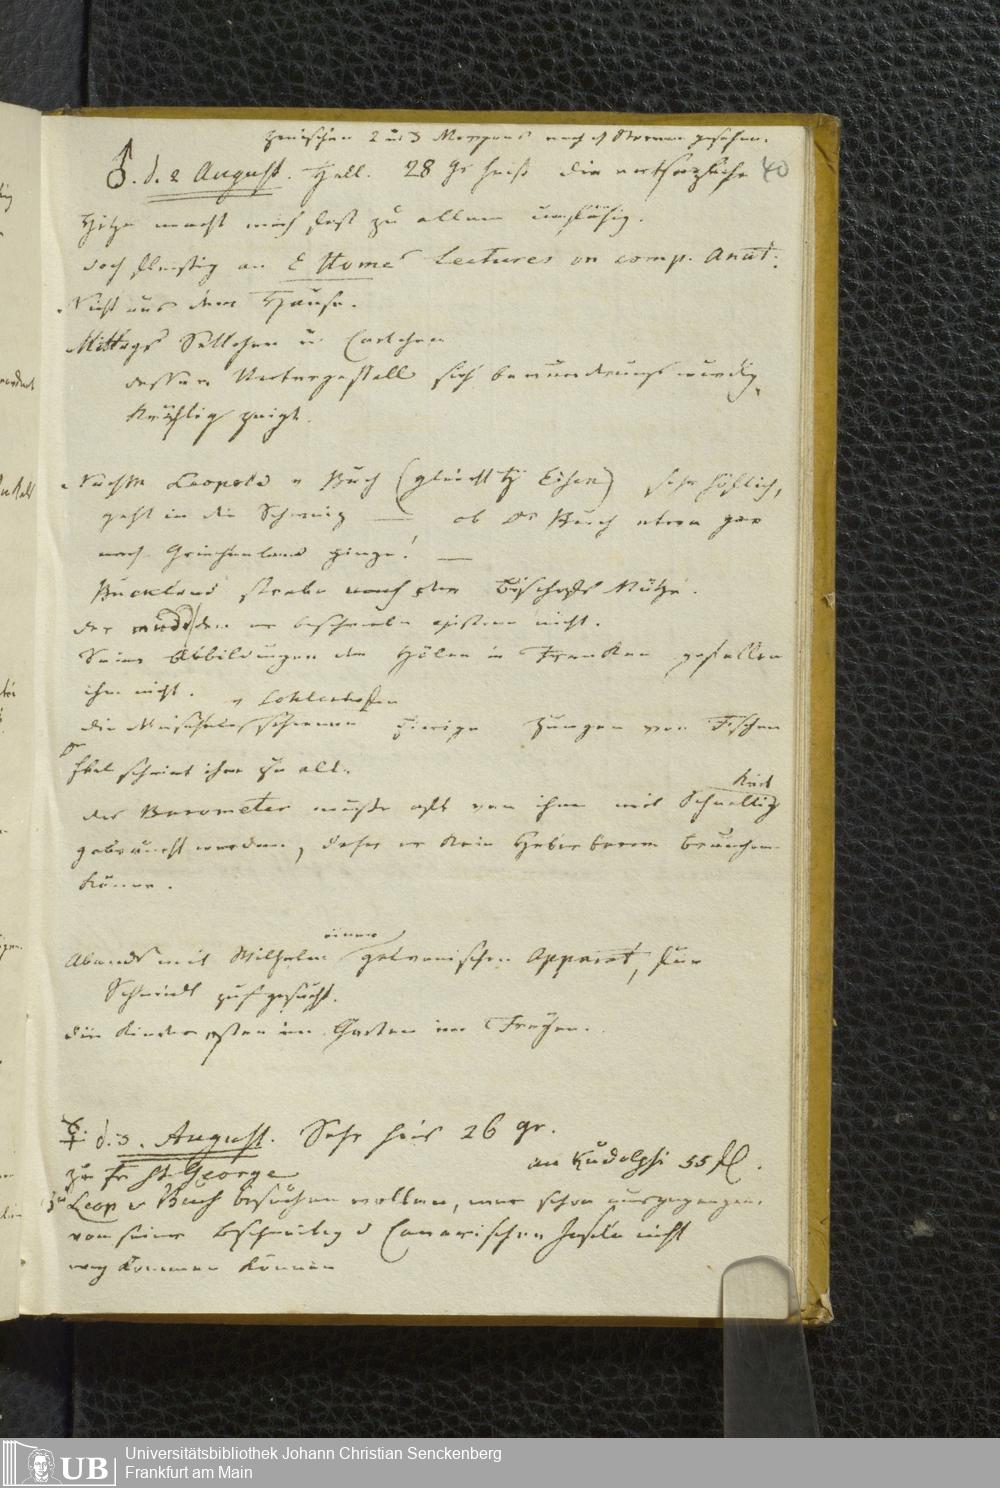 zwischen 2 u 3 Morgens nach d Sternen gesehen.
♂. d. 2 August. Hell. 28 Gr heiß die entsezliche 40
Hitze macht mich fast zu allem unfähig.
doch fleißig an E Home's Lectures on comp. Anat:
Nicht aus dem Hause.
Mittags Settchen u Carlchen
dessen Untergestell sich bewunderungswürdig
kräftig zeigt.
Leopold v Buch (gleicht Eisen) sehr höflich,
geht in die Schweiz — ob Dr Buch etwa gar
nach Griechenland ginge! —
Buckland strebe nach der Bischofs Mütze.
der den er beschreibe existire nicht.
Seine Abbildungen der Hölen in Franken gefallen
ihm nicht.
die Zungen von Fischen
Ebel scheint ihm zu alt.
der Barometer müsse oft von ihm mit Schnelligkeit
gebraucht werden, daher er kein Heberbarom brauchen
könne.
Abends mit Wilhelm einen galvanischen Apparat, für
Schmidt gesucht.
die Kinder essen im Garten im Freyen.
☿. d. 3. August. Sehr heis 26 gr.
an Rudolphi 55 fl.
zu Fr St George
zu Leop v Buch besuchen wollen, war schon ausgegangen.
von seiner Beschreibg d Canarischen Inseln nicht
weg kommen können
Universitätsbibliothek Johann Christian Senckenberg
Frankfurt am Main
UB